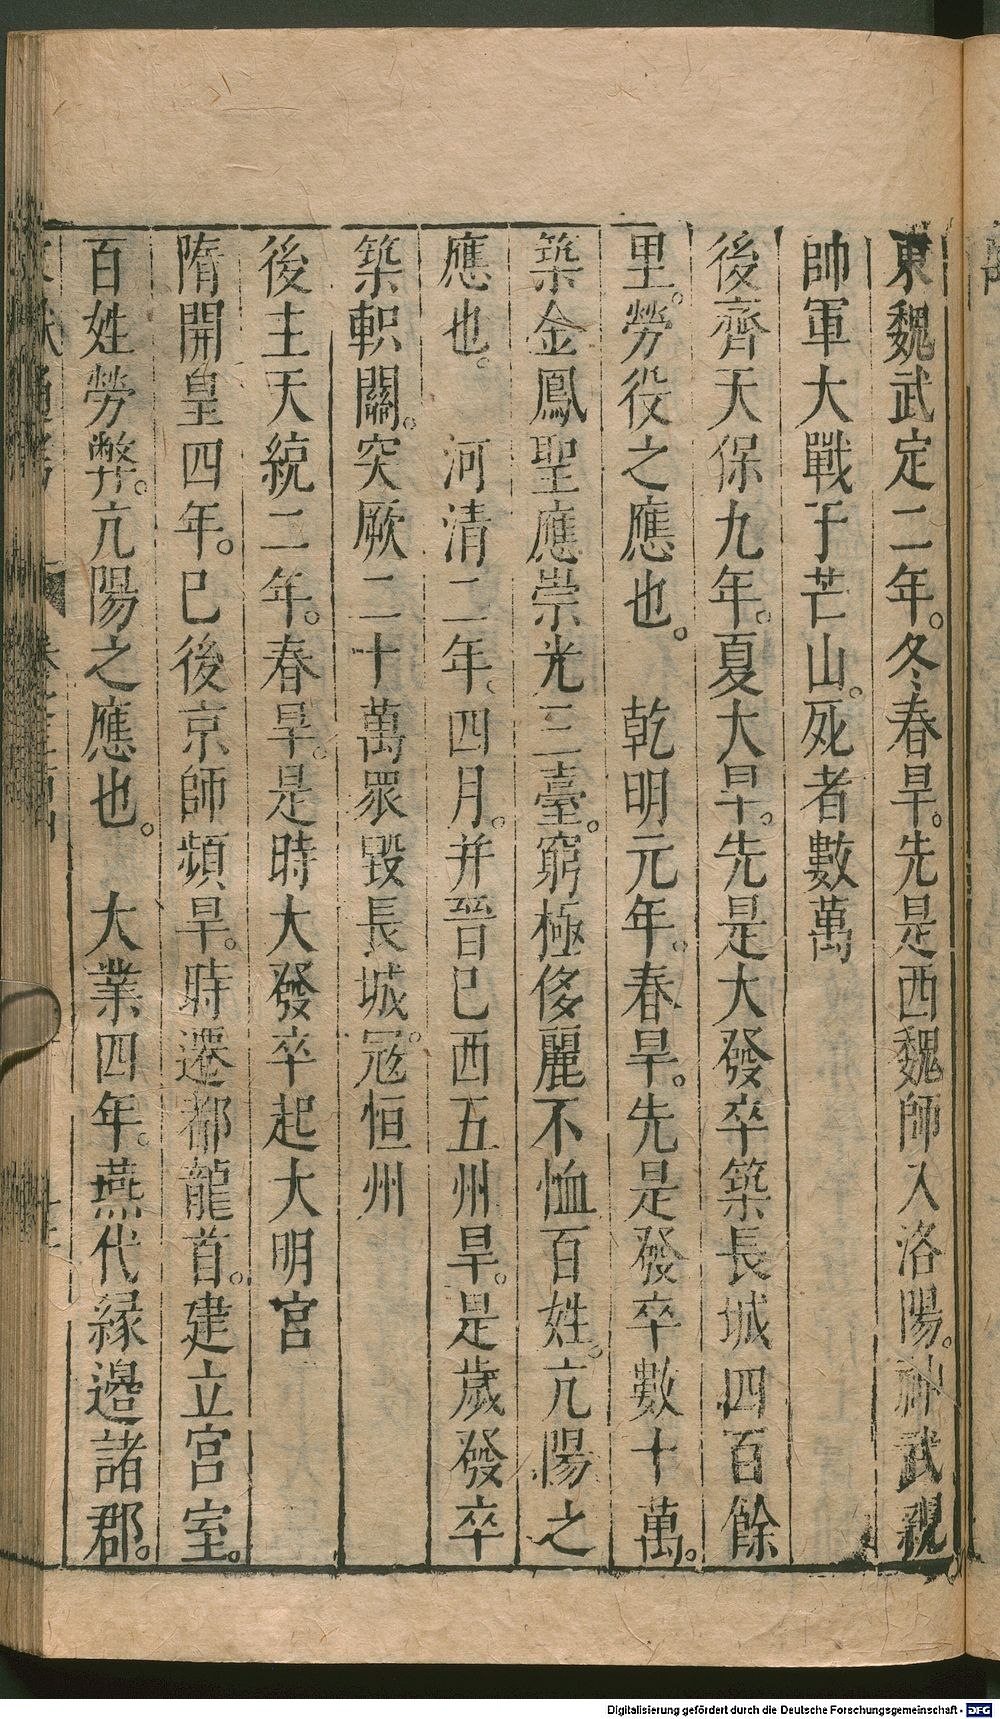 東魏武定二年。冬春旱。先是西魏師入洛陽。神武親
帥軍大戰于芒山。死者數萬
後齊天保九年。夏大旱。先是大發卒築長城四百餘
里。勞役之應也。　乾明元年。春旱。先是發卒數十萬。
築金鳳聖應崇光三臺。窮極侈麗不恤百姓。亢陽之
應也。　河清二年。四月。并晉已西五州旱。是歲發卒
築軹關。突厥二十萬眾毀長城。冦恒州
後主天統二年。春旱。是時大發卒起大明宮
隋開皇四年。已後京師頻旱。時遷都龍首。建立宮室。
百姓勞弊。亢陽之應也。　大業四年。燕代緣邊諸郡。
Digitalisierung gefördert durch die Deutsche Forschungsgemeinschaft - DFG